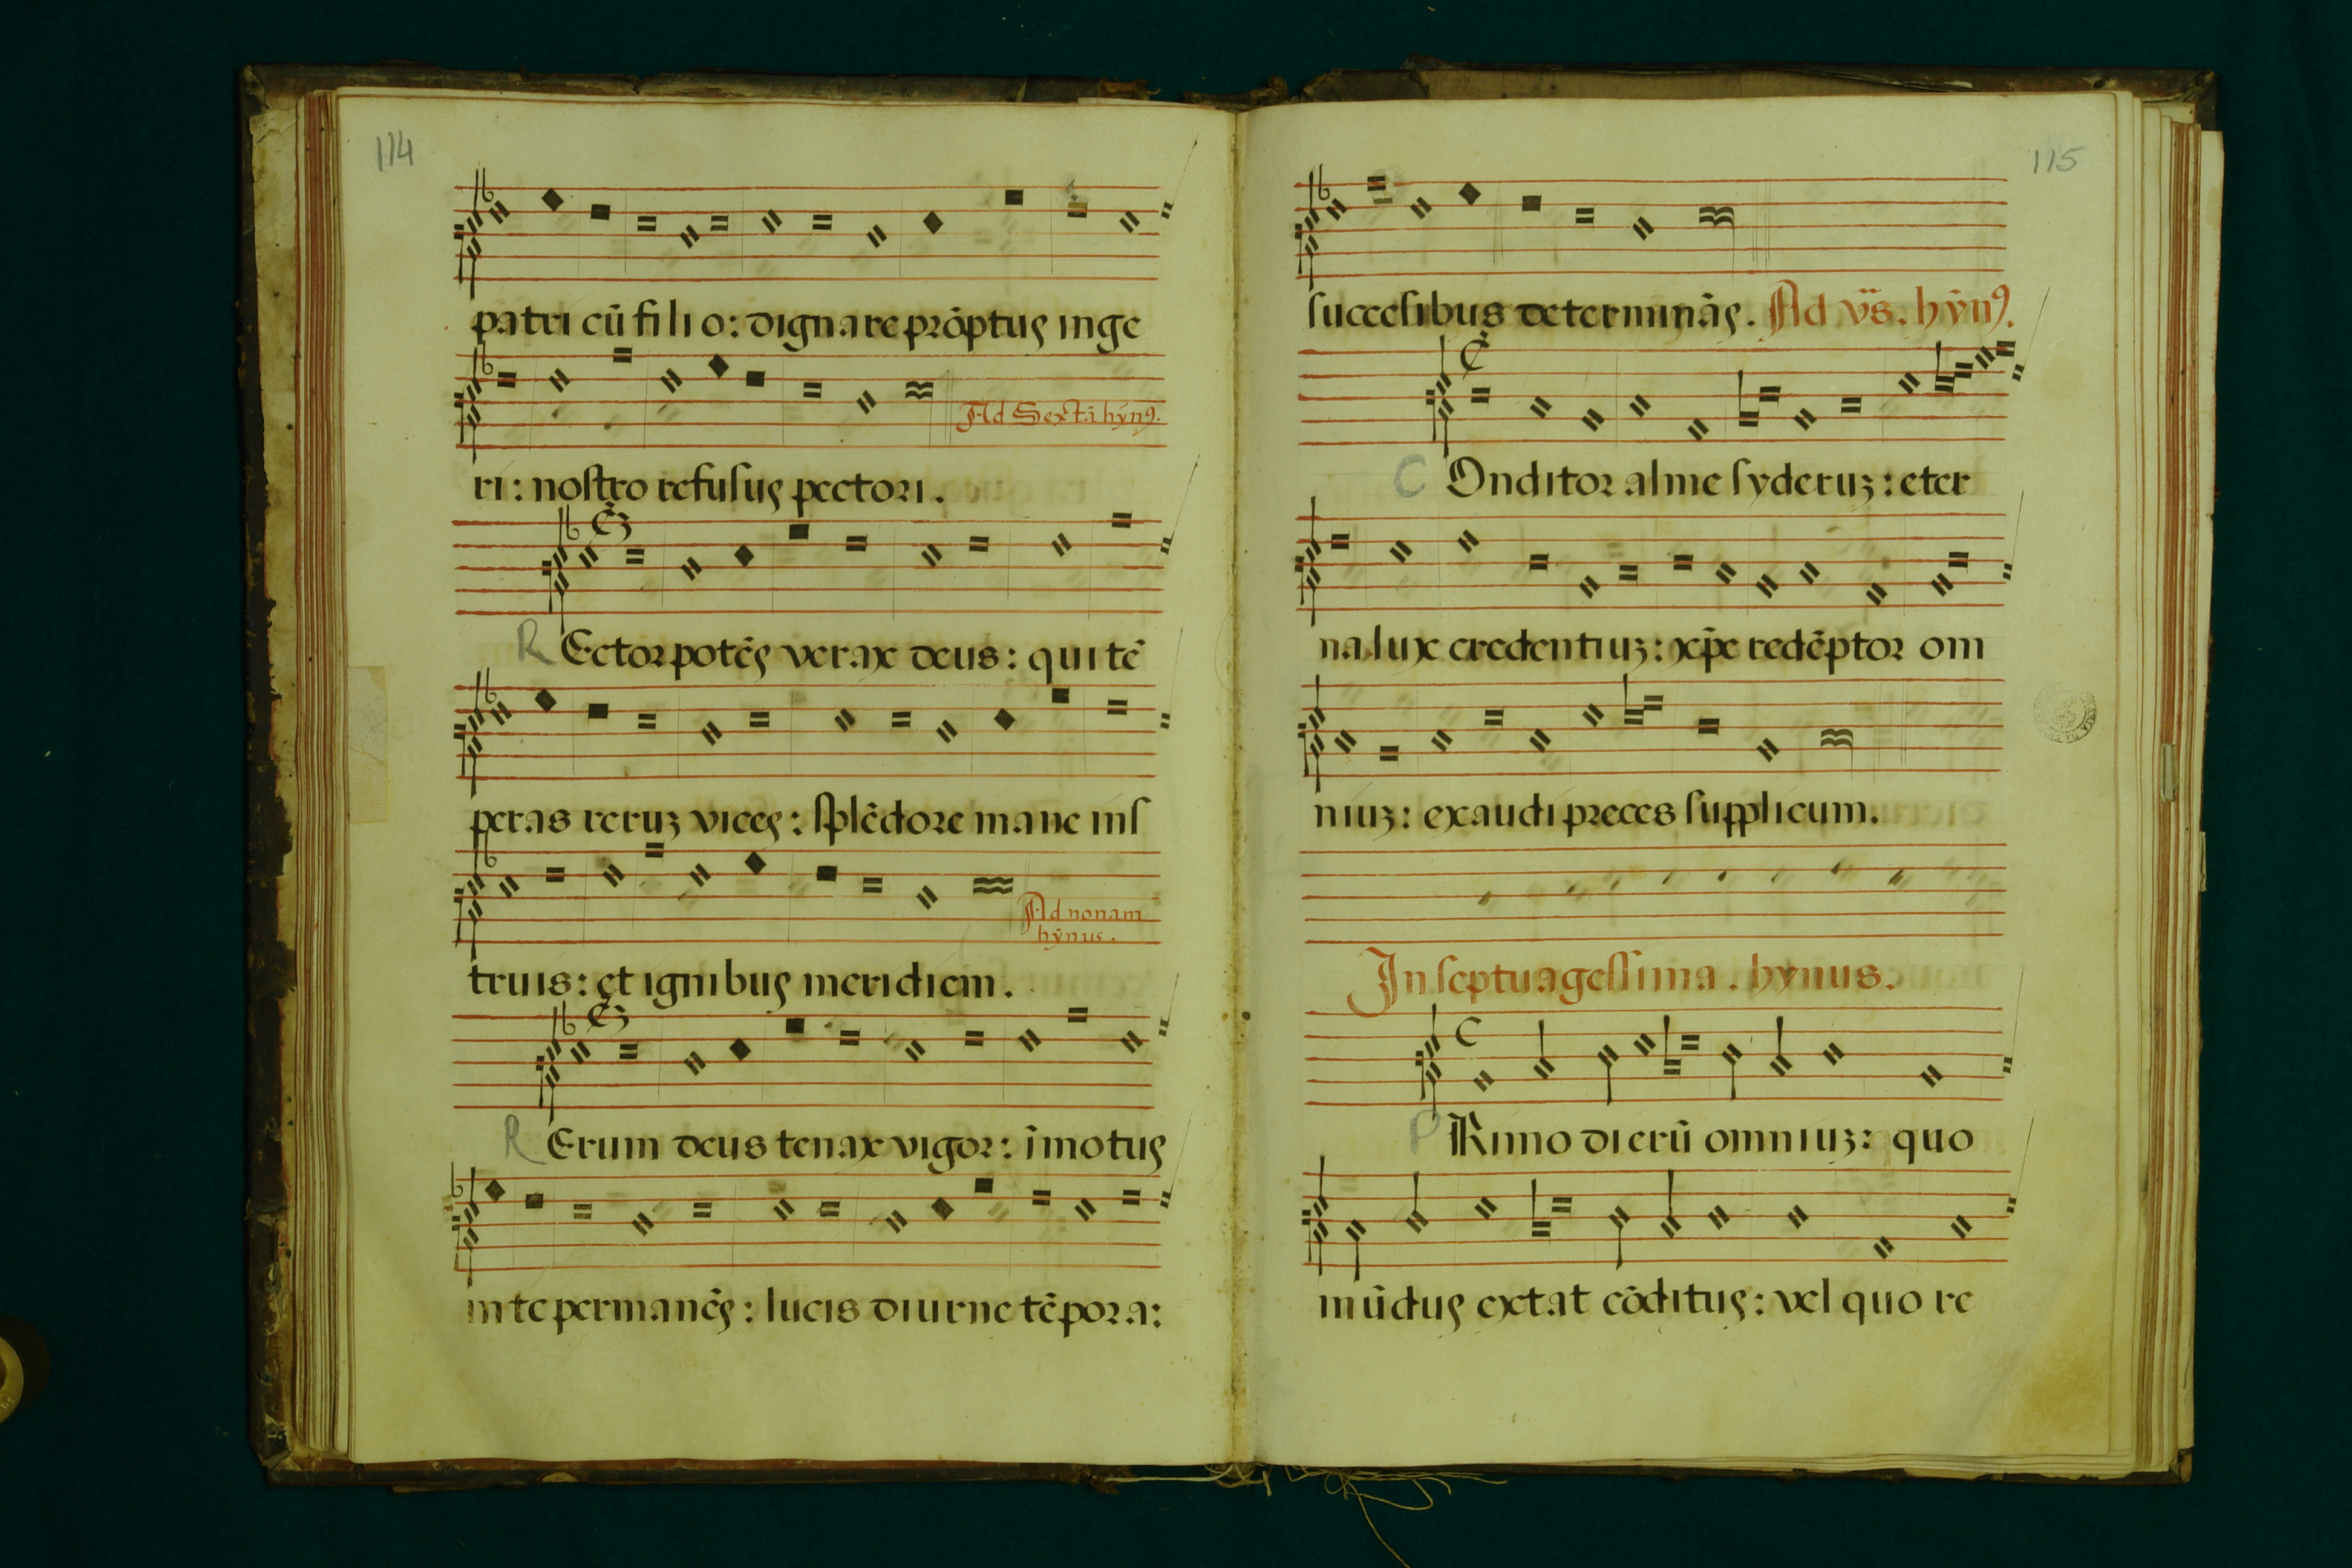 114
patri cū filio: dignare prōptus inge
Ad Sextā hȳn⁹.
ri: nostro refusus pectori.
R Ector potēs verax deus: qui tē
peras reruz vices: splēdore mane ins
Ad nonam
hȳnus.
truis: et ignibus meridiem.
R Erum deus tenax vigor: īmotus
in te permanēs: lucis diurne tēpora:
115
succesibus determinās. Ad vs̄. hȳn⁹.
C Onditor alme syderuz: eter
na lux credentiuz: xp̄e redēptor om
niuz: exaudi preces supplicum.
In septuagessima. hynus.
P Rimo dierū omniuz: quo
mūdus extat cōditus: vel quo re